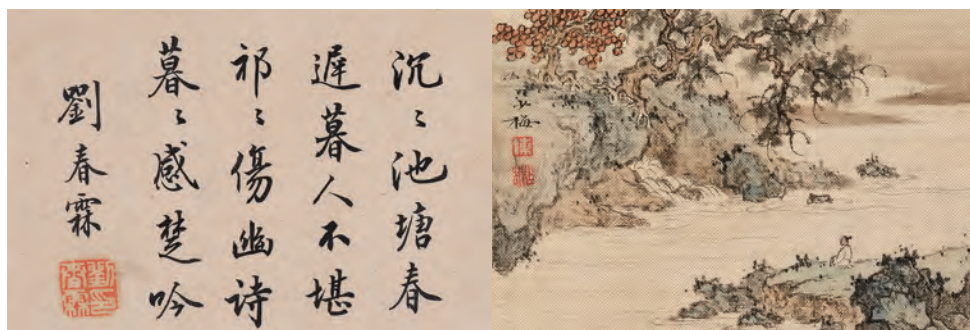 沉〻池塘春
遲暮人不堪
祁〻傷幽詩
暮〻感楚吟
劉春霖